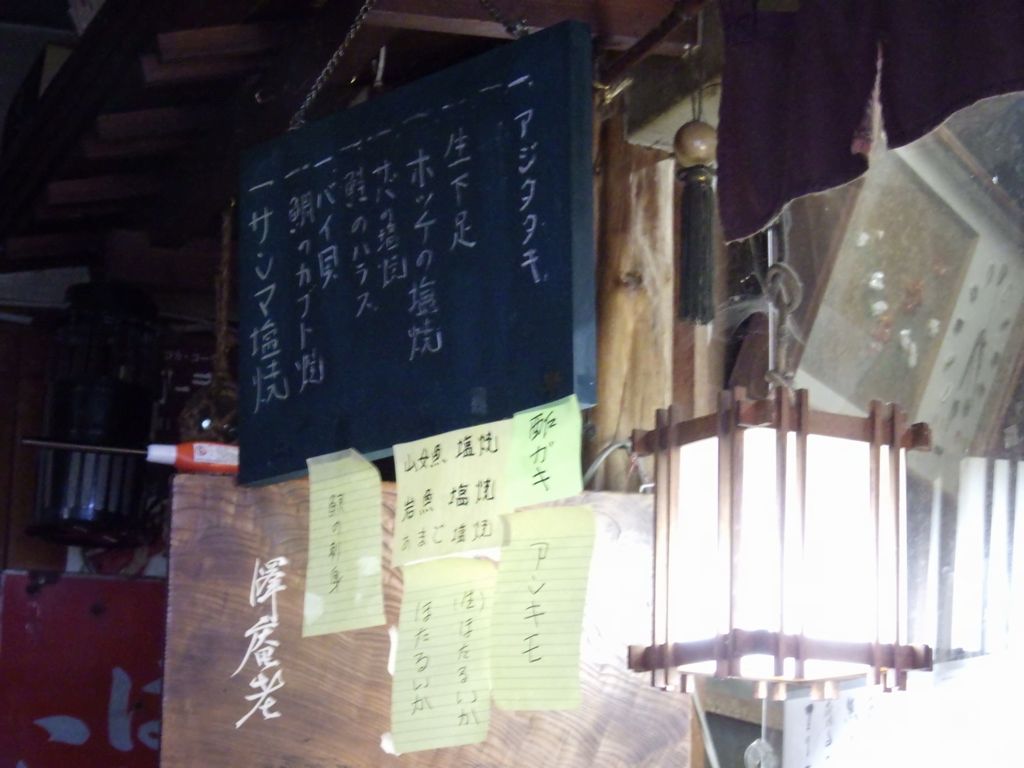 一、アジタタキ
一、生下足
一、ホッケの塩焼
一、サバの塩焼
一、鮭のハラス
一、バイ貝
一、鯛のカブト焼
一、サンマ塩焼
酢ガキ
山女魚、塩焼
岩魚 塩焼
あまご 塩焼
の刺身
アンキモ
(生)ほたるいか
ほたるいか
澤庵老